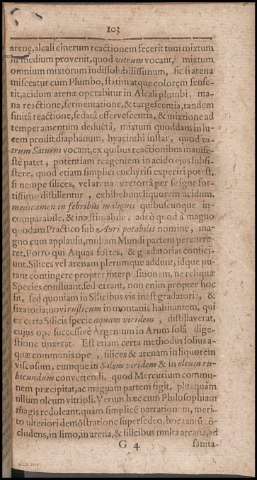 103
arena, alcali cinerum reactionem fecerit tum mixtum
in medium provenit, quod vitrum vocant, mixtum
omnium mixtorum indissolubilissimum, sic si arena
misceatur cum Plumbo, statim atque colorem sense-
rit, acidum arenæ operabitur in Alcali plumbi,
na reactione, fermentatione, & turgescentia, tandem
finita reactione, sedata effervescentia, & mixtione ad
temperamentum deducta, mixtum quoddam in lu-
cem prodit diaphanum, hyacinthi instar, quod vi-
trum Saturni vocant, ex quibus reactionibus manife-
ste patet, potentiam reagentem in acido ejus subsi-
stere, quod etiam simplici
si nempe silices, vel arena
tissime distillentur, exhibebunt liquorem acidum,
medicamen in febribus malignis quibuscunque in-
comparabile, & inæstimabile: adeò quod à magno
quodam Practico sub Auri potabilis nomine, ma-
gno cum applausu, mundi partem percurre-
ret. Porro qui Aquas fortes, & gradatorias confici-
unt. Silices vel arenam plerumque addunt, idque
rant contingere propter interpositionem, ne reliquæ
Species confluant, sed errant, non enim propter hoc
fit, sed quoniam in Silicibus vis inest gradatoria, &
in montanis habitantem, qui
ex certa Silicis specie aquam viridem, distillaverat,
cujus ope successivè Argentum in Aurum solâ dige-
stione vinerat. Est etiam certa methodus solius a-
quæ communis ope, silices & arenam in liquorem
viscosum, eumque in Salem viridem & in oleum ru-
bicundum convertendi, quod Mercurium commu-
nem præcipitat, ac magnam partem figit,
ullum oleum vitrioli. Verum hæc cum Philosophiam
magis redoleant, quam simplicè narrationem, meri-
to ulteriori demonstratione supersedeo, hoc
cludens, in fimo, in arena, & silicibus multa arcana, ad
G 4
sanita-